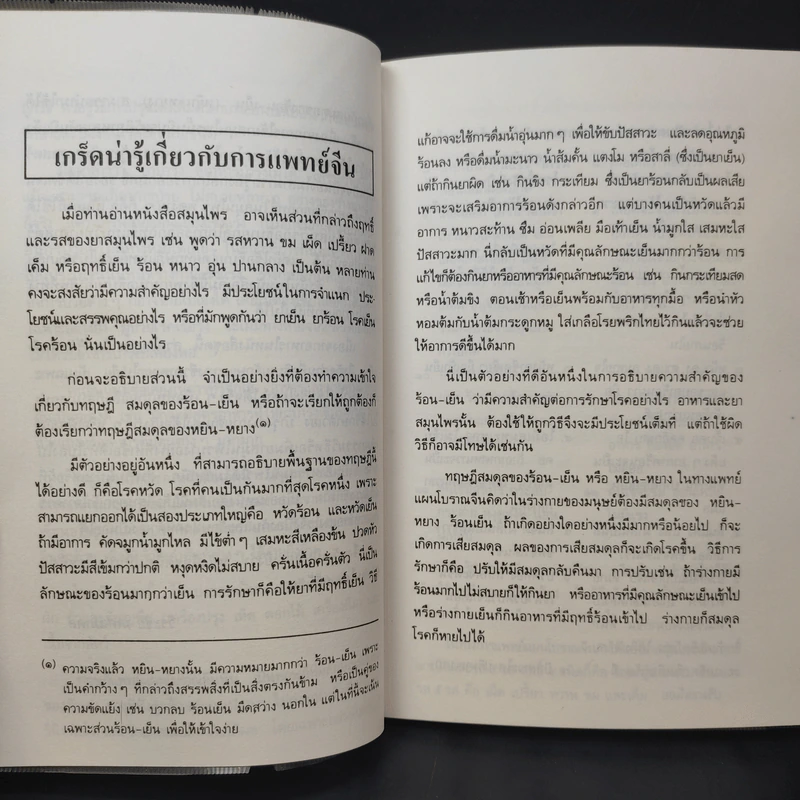 เกร็ดน่ารู้เกี่ยวกับการแพทย์จีน
เมื่อท่านอ่านหนังสือสมุนไพร อาจเห็นส่วนที่กล่าวถึงฤทธิ์
และรสของยาสมุนไพร เช่น พูดว่า รสหวาน ขม เผ็ด เปรี้ยว ฝาด
เค็ม หรือฤทธิ์เย็น ร้อน หนาว อุ่น ปานกลาง เป็นต้น หลายท่าน
คงจะสงสัยว่ามีความสำคัญอย่างไร มีประโยชน์ในการจำแนก ประ-
โยชน์และสรรพคุณอย่างไร หรือที่มักพูดกันว่า ยาเย็น ยาร้อน โรคเย็น
โรคร้อน นั่นเป็นอย่างไร
ก่อนจะอธิบายส่วนนี้ จำเป็นอย่างยิ่งที่ต้องทำความเข้าใจ
เกี่ยวกับทฤษฎี สมดุลของร้อน-เย็น หรือถ้าจะเรียกให้ถูกต้องก็
ต้องเรียกว่าทฤษฎีสมดุลของหยิน-หยาง(๑)
มีตัวอย่างอยู่อันหนึ่ง ที่สามารถอธิบายพื้นฐานของทฤษฎีนี้
ได้อย่างดี ก็คือโรคหวัด โรคที่คนเป็นกันมากที่สุดโรคหนึ่ง เพราะ
สามารถแยกออกได้เป็นสองประเภทใหญ่คือ หวัดร้อน และหวัดเย็น
ถ้ามีอาการ คัดจมูกน้ำมูกไหล มีไข้ต่ำๆ เสมหะสีเหลืองข้น ปวดหัว
ปัสสาวะมีสีเข้มกว่าปกติ หงุดหงิดไม่สบาย ครั่นเนื้อครั่นตัว นี่เป็น
ลักษณะของร้อนมากกว่าเย็น การรักษาก็คือให้ยาที่มีฤทธิ์เย็น วิธี
(๑) ความจริงแล้ว หยิน-หยางนั้น มีความหมายมากกว่า ร้อน-เย็น เพราะ
เป็นคำกว้างๆ ที่กล่าวถึงสรรพสิ่งที่เป็นสิ่งตรงกันข้าม หรือเป็นคู่ของ
ความขัดแย้ง เช่น บวกลบ ร้อนเย็น มืดสว่าง นอกใน แต่ในที่นี้จะเน้น
เฉพาะส่วนร้อน-เย็น เพื่อให้เข้าใจง่าย
แก้อาจจะใช้การดื่มน้ำอุ่นมากๆ เพื่อให้ขับปัสสาวะ และลดอุณหภูมิ
ร้อนลง หรือดื่มน้ำมะนาว น้ำส้มคั้น แตงโม หรือสาลี่ (ซึ่งเป็นยาเย็น)
แต่ถ้ากินยาผิด เช่น กินขิง กระเทียม ซึ่งเป็นยาร้อนกลับเป็นผลเสีย
เพราะจะเสริมอาการร้อนดังกล่าวอีก แต่บางคนเป็นหวัดแล้วมี
อาการ หนาวสะท้าน ซึม อ่อนเพลีย มือเท้าเย็น น้ำมูกใส เสมหะใส
ปัสสาวะมาก นี่กลับเป็นหวัดที่มีคุณลักษณะเย็นมากกว่าร้อน การ
แก้ไขก็ต้องกินยาหรืออาหารที่มีคุณลักษณะร้อน เช่น กินกระเทียมสด
หรือน้ำต้มขิง ตอนเช้าหรือเย็นพร้อมกับอาหารทุกมื้อ หรือนำหัว
หอมต้มกับน้ำต้มกระดูกหมู ใส่เกลือโรยพริกไทยไว้กินแล้วจะช่วย
ให้อาการดีขึ้นได้มาก
นี่เป็นตัวอย่างที่ดีอันหนึ่งในการอธิบายความสำคัญของ
ร้อน-เย็น ว่ามีความสำคัญต่อการรักษาโรคอย่างไร อาหารและยา
สมุนไพรนั้น ต้องใช้ให้ถูกวิธีจึงจะมีประโยชน์เต็มที่ แต่ถ้าใช้ผิด
วิธีก็อาจมีโทษได้เช่นกัน
ทฤษฎีสมดุลของร้อน-เย็น หรือ หยิน-หยาง ในทางแพทย์
แผนโบราณจีนคิดว่าในร่างกายของมนุษย์ต้องมีสมดุลของ หยิน-
หยาง ร้อนเย็น ถ้าเกิดอย่างใดอย่างหนึ่งมีมากหรือน้อยไป ก็จะ
เกิดการเสียสมดุล ผลของการเสียสมดุลก็จะเกิดโรคขึ้น วิธีการ
รักษาก็คือ ปรับให้มีสมดุลกลับคืนมา การปรับเช่น ถ้าร่างกายมี
ร้อนมากไปไม่สบายก็ให้กินยา หรืออาหารที่มีคุณลักษณะเย็นเข้าไป
หรือร่างกายเย็นก็กินอาหารที่มีฤทธิ์ร้อนเข้าไป ร่างกายก็สมดุล
โรคก็หายไปได้